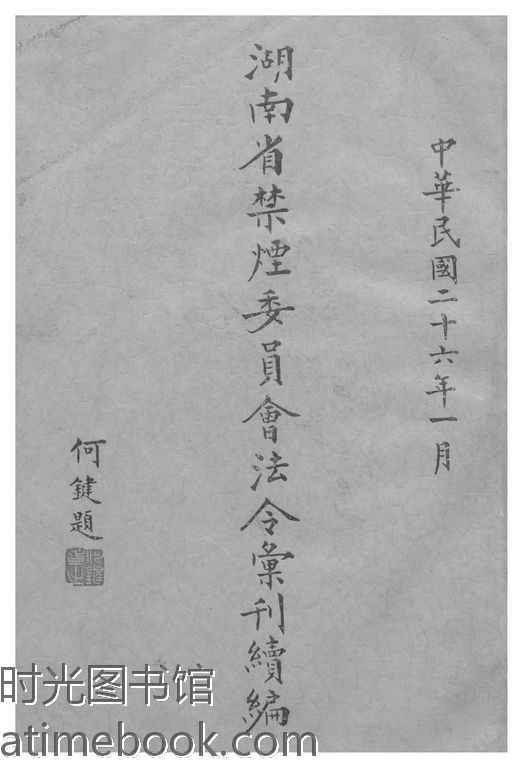 中華民國二十六年一月
湖南省禁煙委員會法令彙刊續編
何鍵題
时光图书馆
atimebook.com